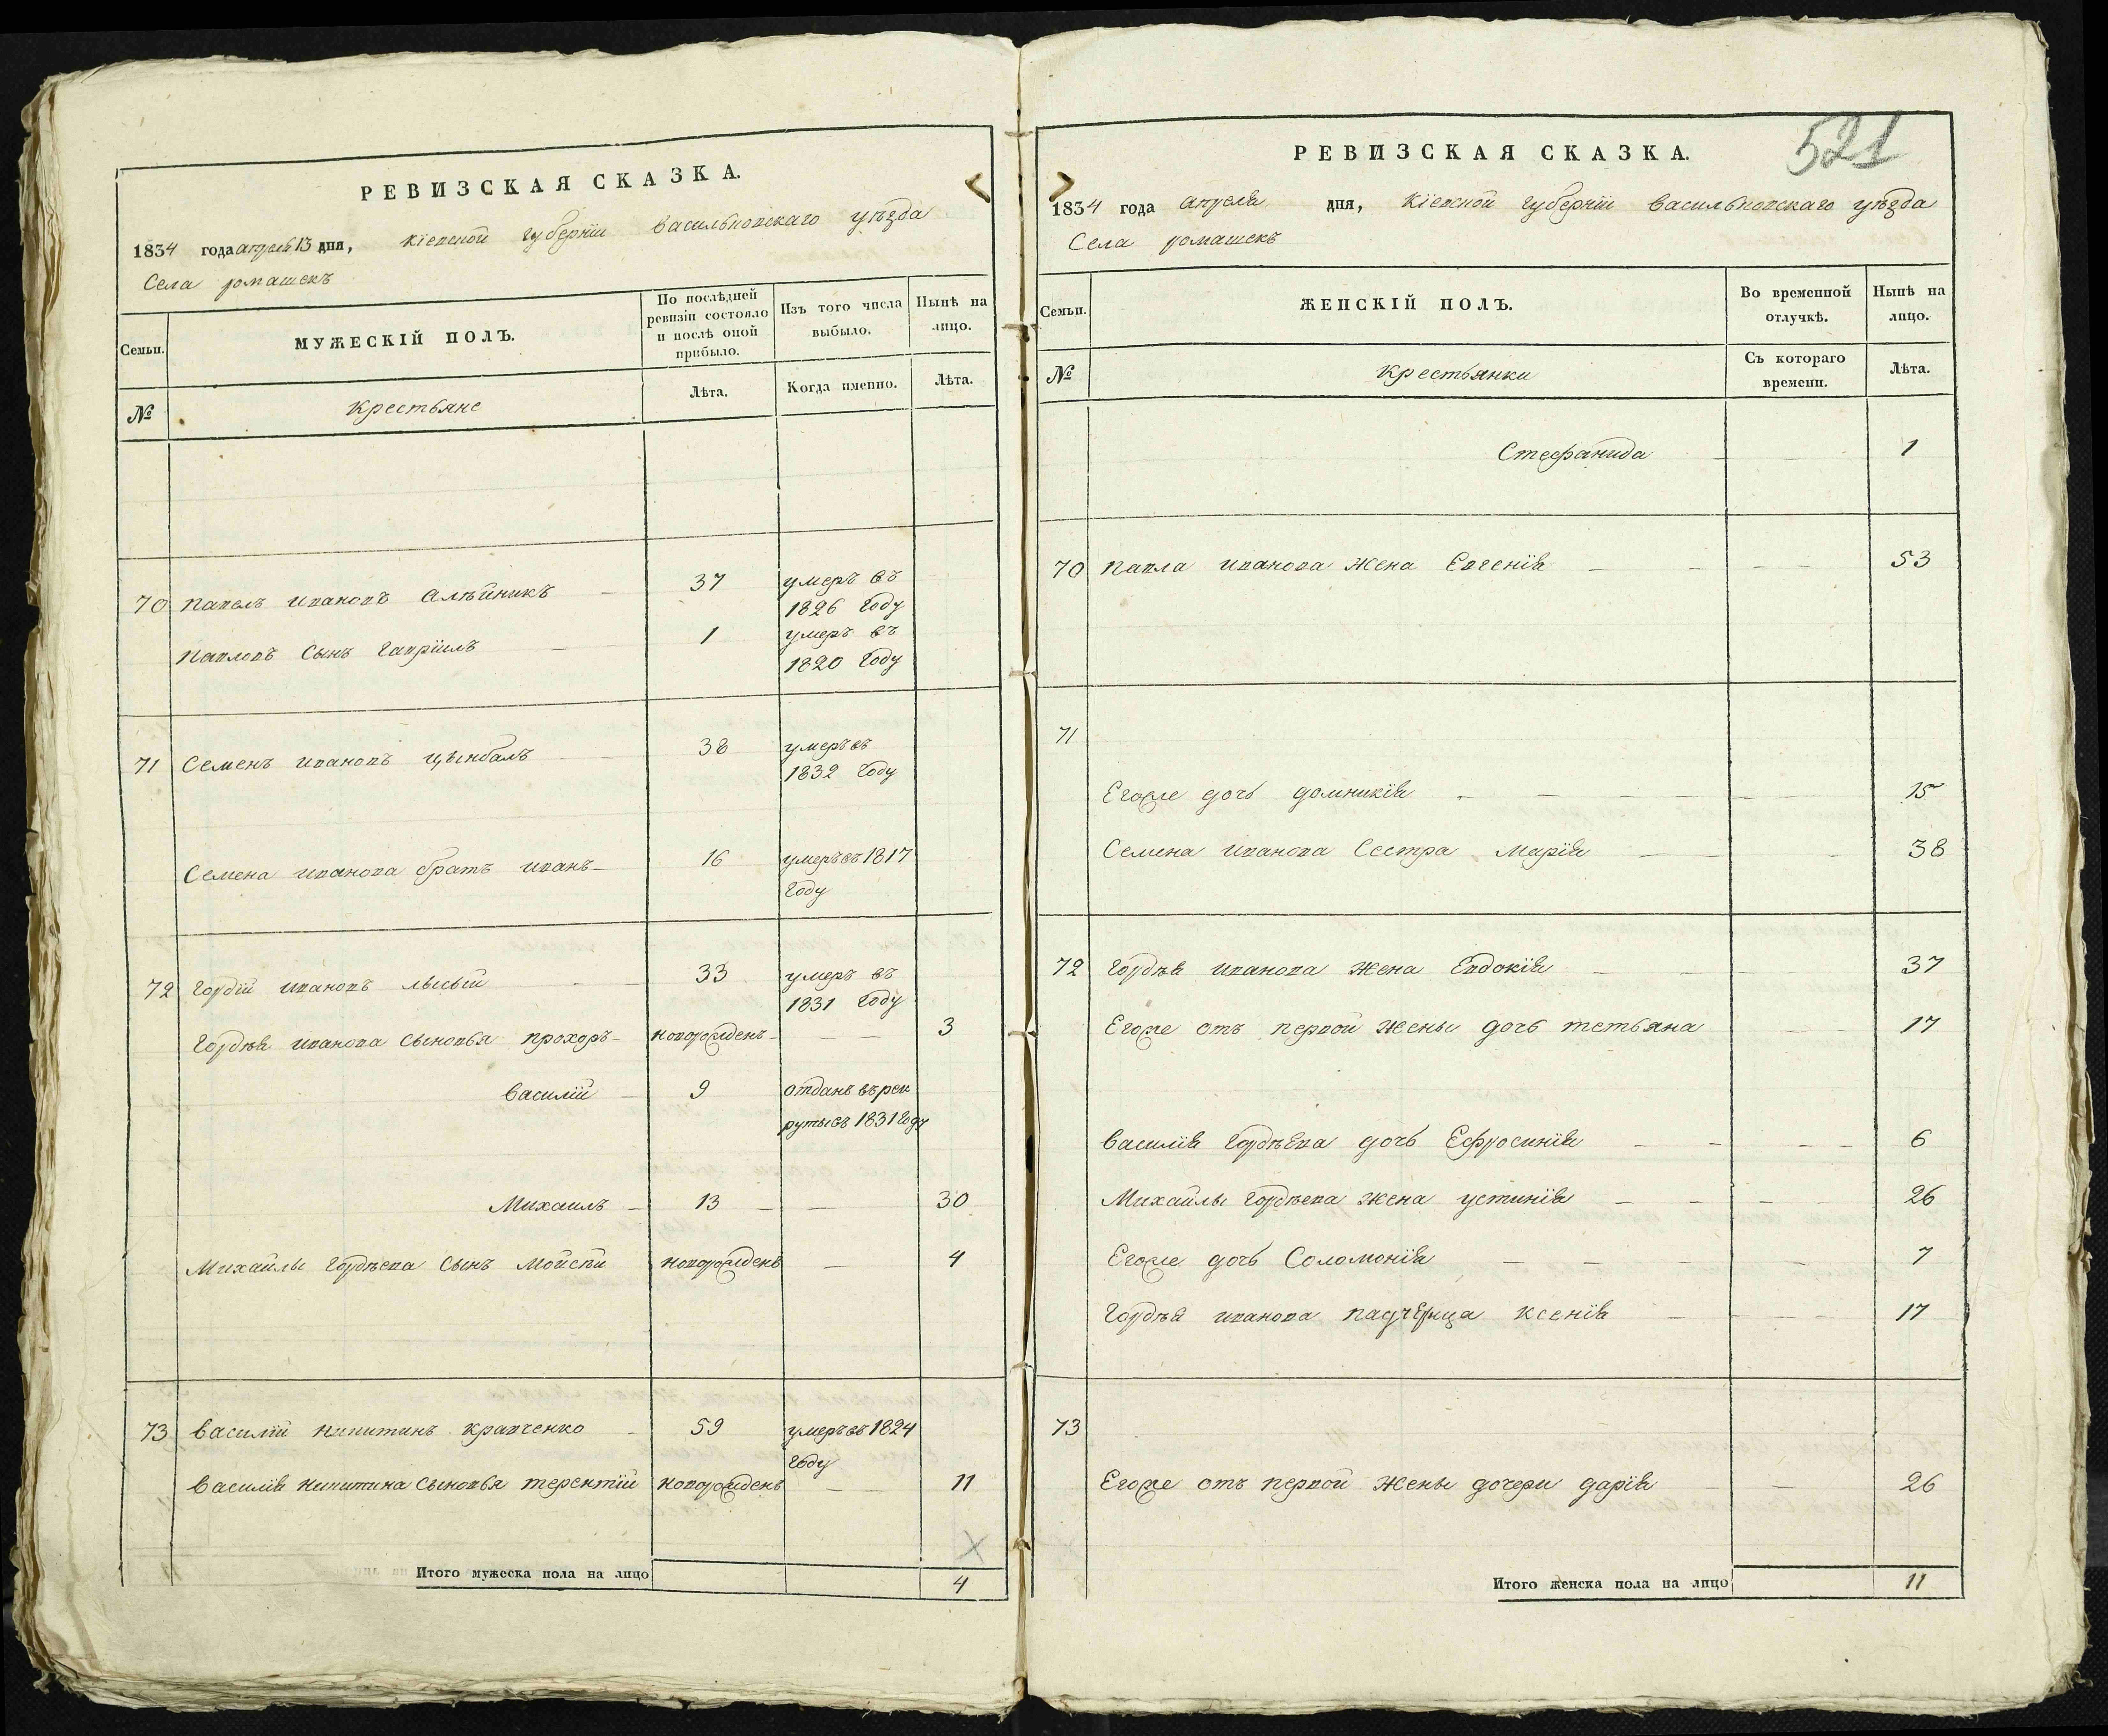 РЕВИЗСКАЯ СКАЗКА.
1834 года апреля 13 дня, Кіевской губерніи Васильковскаго уѣзда
Села ромашекъ
Семьи.
МУЖЕСКІЙ ПОЛЪ.
По послѣдней ревизіи состояло и послѣ оной прибыло.
Изъ того числа выбыло.
Нынѣ на лицо.
№
Крестьяне
Лѣта.
Когда именно.
Лѣта.
70 Павелъ Ивановъ Алѣйникъ 37 умеръ въ
1826 году
Павловъ Сынъ Гавріилъ 1 умеръ въ
1820 году
71 Семенъ Ивановъ Цымбалъ 38 умеръ въ
1832 году
Семена Иванова братъ Иванъ 16 умеръ въ 1817
году
72 Гордій Ивановъ лысый 33 умеръ въ
1831 году
Гордѣя Иванова Сыновья Прохоръ новорожденъ 3
Василій 9 отданъ въ рек
руты въ 1831 году
Михаилъ 13 30
Михайлы Гордѣева Сынъ Мойсѣй новорожденъ 4
73 Василій Никитинъ Кравченко 59 умеръ въ 1824
году
Василія Никитина Сыновья терентій новорожденъ 11
Итого мужеска пола на лицо 4
521
РЕВИЗСКАЯ СКАЗКА.
1834 года апреля дня, Кіевской губерніи Васильковскаго уѣзда
Села ромашекъ
Семьи.
ЖЕНСКІЙ ПОЛЪ.
Во временной отлучкѣ.
Нынѣ на лицо.
№
Крестьянки
Съ котораго времени.
Лѣта.
Стефанида 1
70 Павла Иванова Жена Евгенія 53
71
Егоже дочь домникія 15
Семена Иванова Сестра Марія 38
72 Гордѣя Иванова Жена Евдокія 37
Егоже отъ первой Жены дочь тетьяна 17
Василія Гордѣева дочь Ефросинія 6
Михайлы Гордѣева Жена устинія 26
Егоже дочь Соломонія 7
Гордѣя Иванова Падчерица Ксенія 17
73
Егоже отъ первой Жены дочери дарія 26
Итого женска пола на лицо 11